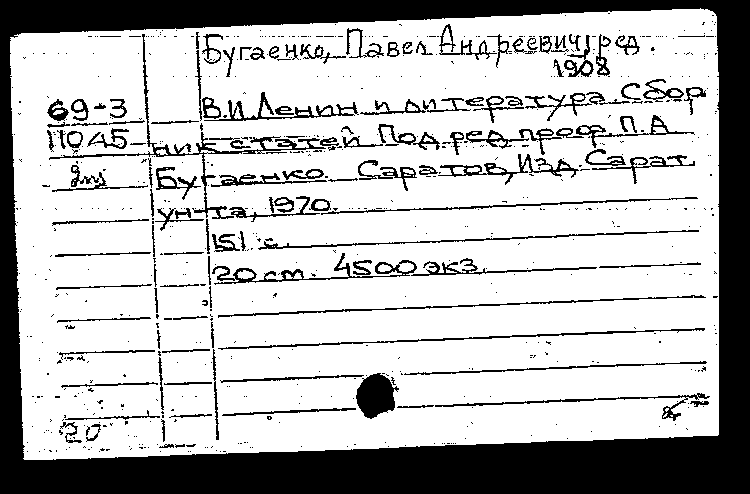 Бугаенко, Павел Андреевич, ред.
1908
69-3 В.И. Ленин и литература. Сбор
11045 ник статей. Под ред. проф. П.А.
Бугаенко. Саратов, Изд. Сарат.
ун-та, 1970.
151 с.
20 см. 4500 экз.
20